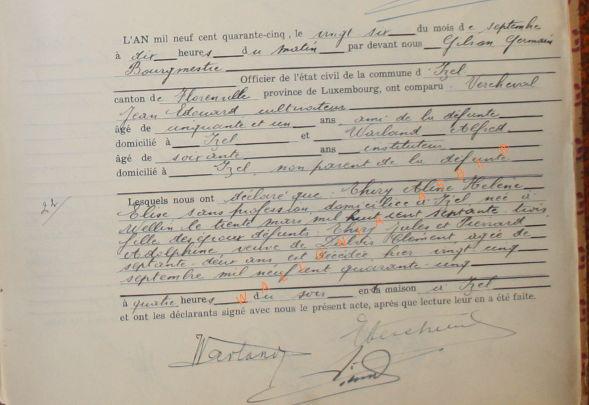 L'AN mil neuf cent quarante-cinq, le vingt six du mois de septembre
à dix heures du matin par devant nous Gilson Germain
Bourgmestre Officier de l'état civil de la commune d'Izel
canton de Florenville province de Luxembourg, ont comparu Vercheval
Jean Edouard cultivateur
âgé de cinquante et un ans ami de la défunte
domicilié à Izel et Warland Alfred
âgé de soixante ans instituteur
domicilié à Izel non parent de la defunte
22/
Lesquels nous ont déclaré que Thiry Aline Hélène
Elise sans profession domiciliée à Izel née à
Wellin le trente mars mil huit cent septante trois
fille des époux défunts Thiry Jules et Pierard
Adolphine, veuve de Clément agée de
septante-deux ans est décédée hier vingt cinq
septembre mil neuf cent quarante-cinq
à quatre heures du soir en sa maison à Izel
et ont les déclarants signé avec nous le présent acte, après que lecture leur en a été faite.
Warland